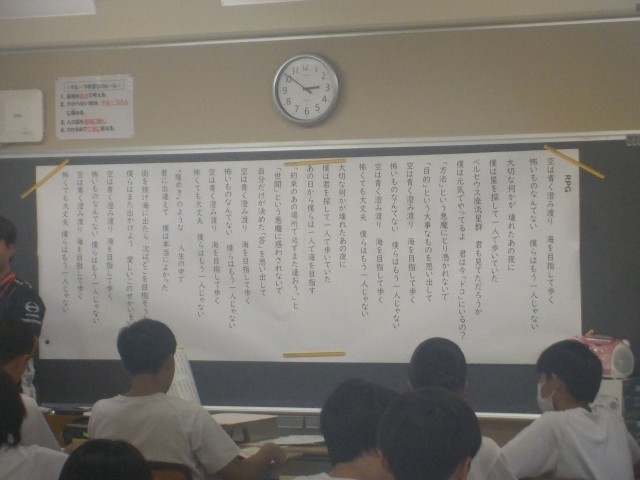 RPG
空は青く澄み渡り 海を目指して歩く
怖いものなんてない 僕らはもう一人じゃない
大切な何かが 壊れたあの夜に
僕は星を探して一人で歩いていた
ペルセウス座流星群 君も見てただろうか
僕は元気でやってるよ 君は今「ドコ」にいるの?
「方法」という悪魔にとり憑かれないで
「目的」という大事なものを思い出して
空は青く澄み渡り 海を目指して歩く
怖いものなんてない 僕らはもう一人じゃない
空は青く澄み渡り 海を目指して歩く
怖くても大丈夫 僕らはもう一人じゃない
大切な何かが壊れたあの夜に
僕は君を探して一人で歩いていた
あの日から僕らは一人で海を目指す
「約束のあの場所で必ずまた逢おう。」と
「世間」という悪魔に惑わされないで
自分だけが決めた「答」を思い出して
空は青く澄み渡り 海を目指して歩く
怖いものなんてない 僕らはもう一人じゃない
空は青く澄み渡り 海を目指して歩く
怖くても大丈夫 僕らはもう一人じゃない
"煌めき"のような 人生の中で
君に出逢えて 僕は本当によかった
街を抜け海に出たら 次はどこを目指そう
僕らはまた出かけよう 愛しいこのせかいを
空は青く澄み渡り 海を目指して歩く
怖いものなんてない 僕らはもう一人じゃない
空は青く澄み渡り 海を目指して歩く
怖くても大丈夫 僕らはもう一人じゃない